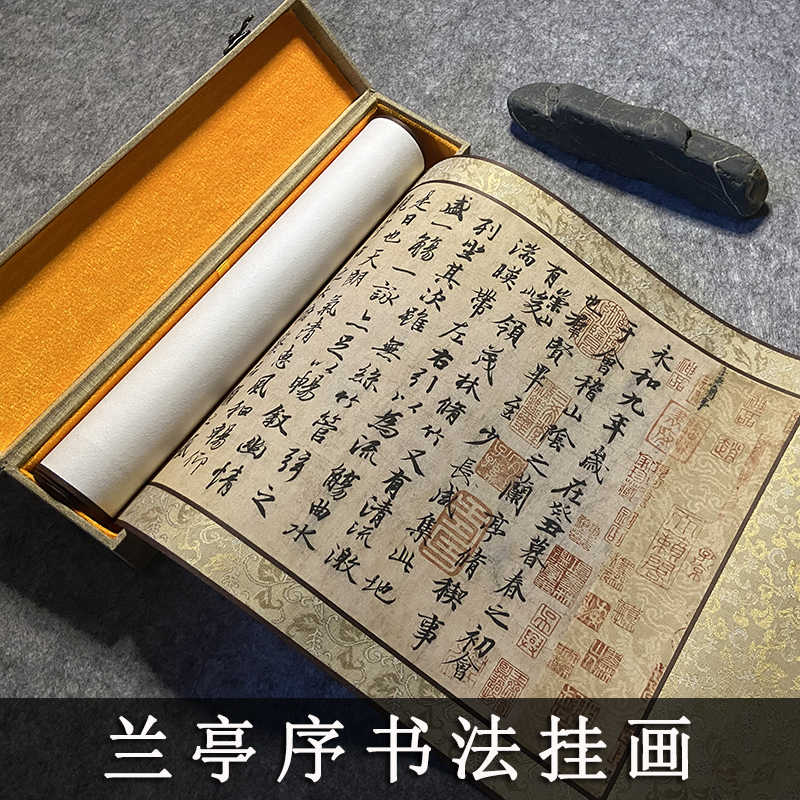 永和九年歲在癸丑暮春之初會
于會稽山陰之蘭亭脩稧事
也羣賢畢至少長咸集此地
有崇山峻領茂林脩竹又有清流激
湍暎帶左右引以為流觴曲水
列坐其次雖無絲竹管弦之
盛一觴一詠亦足以暢叙幽情
是日也天朗氣清惠風和暢仰
神品
天籟閣
兰亭序书法挂画